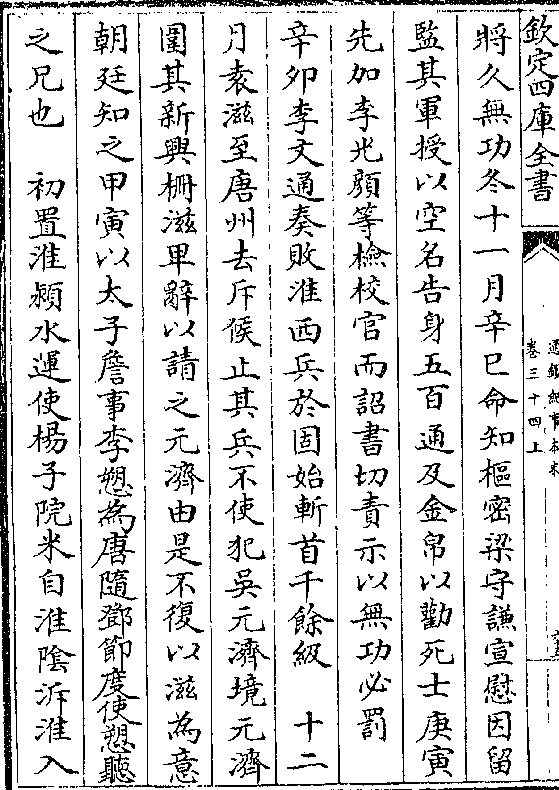 欽定四庫全書
通鑑紀事本末
卷三十四上
將久無功冬十一月辛巳命知樞密梁守謙宣慰因留
監其軍授以空名告身五百通及金帛以勸死士庚寅
先加李光顏等檢校官而詔書切責示以無功必罰
辛卯李文通奏敗淮西兵於固始斬首千餘級　十二
月袁滋至唐州去斥候止其兵不使犯吳元濟境元濟
圍其新興柵滋卑辭以請之元濟由是不復以滋為意
朝廷知之甲寅以太子詹事李愬為唐隨鄧節度使愬聽
之兄也　初置淮潁水運使楊子院米自淮陰泝淮入